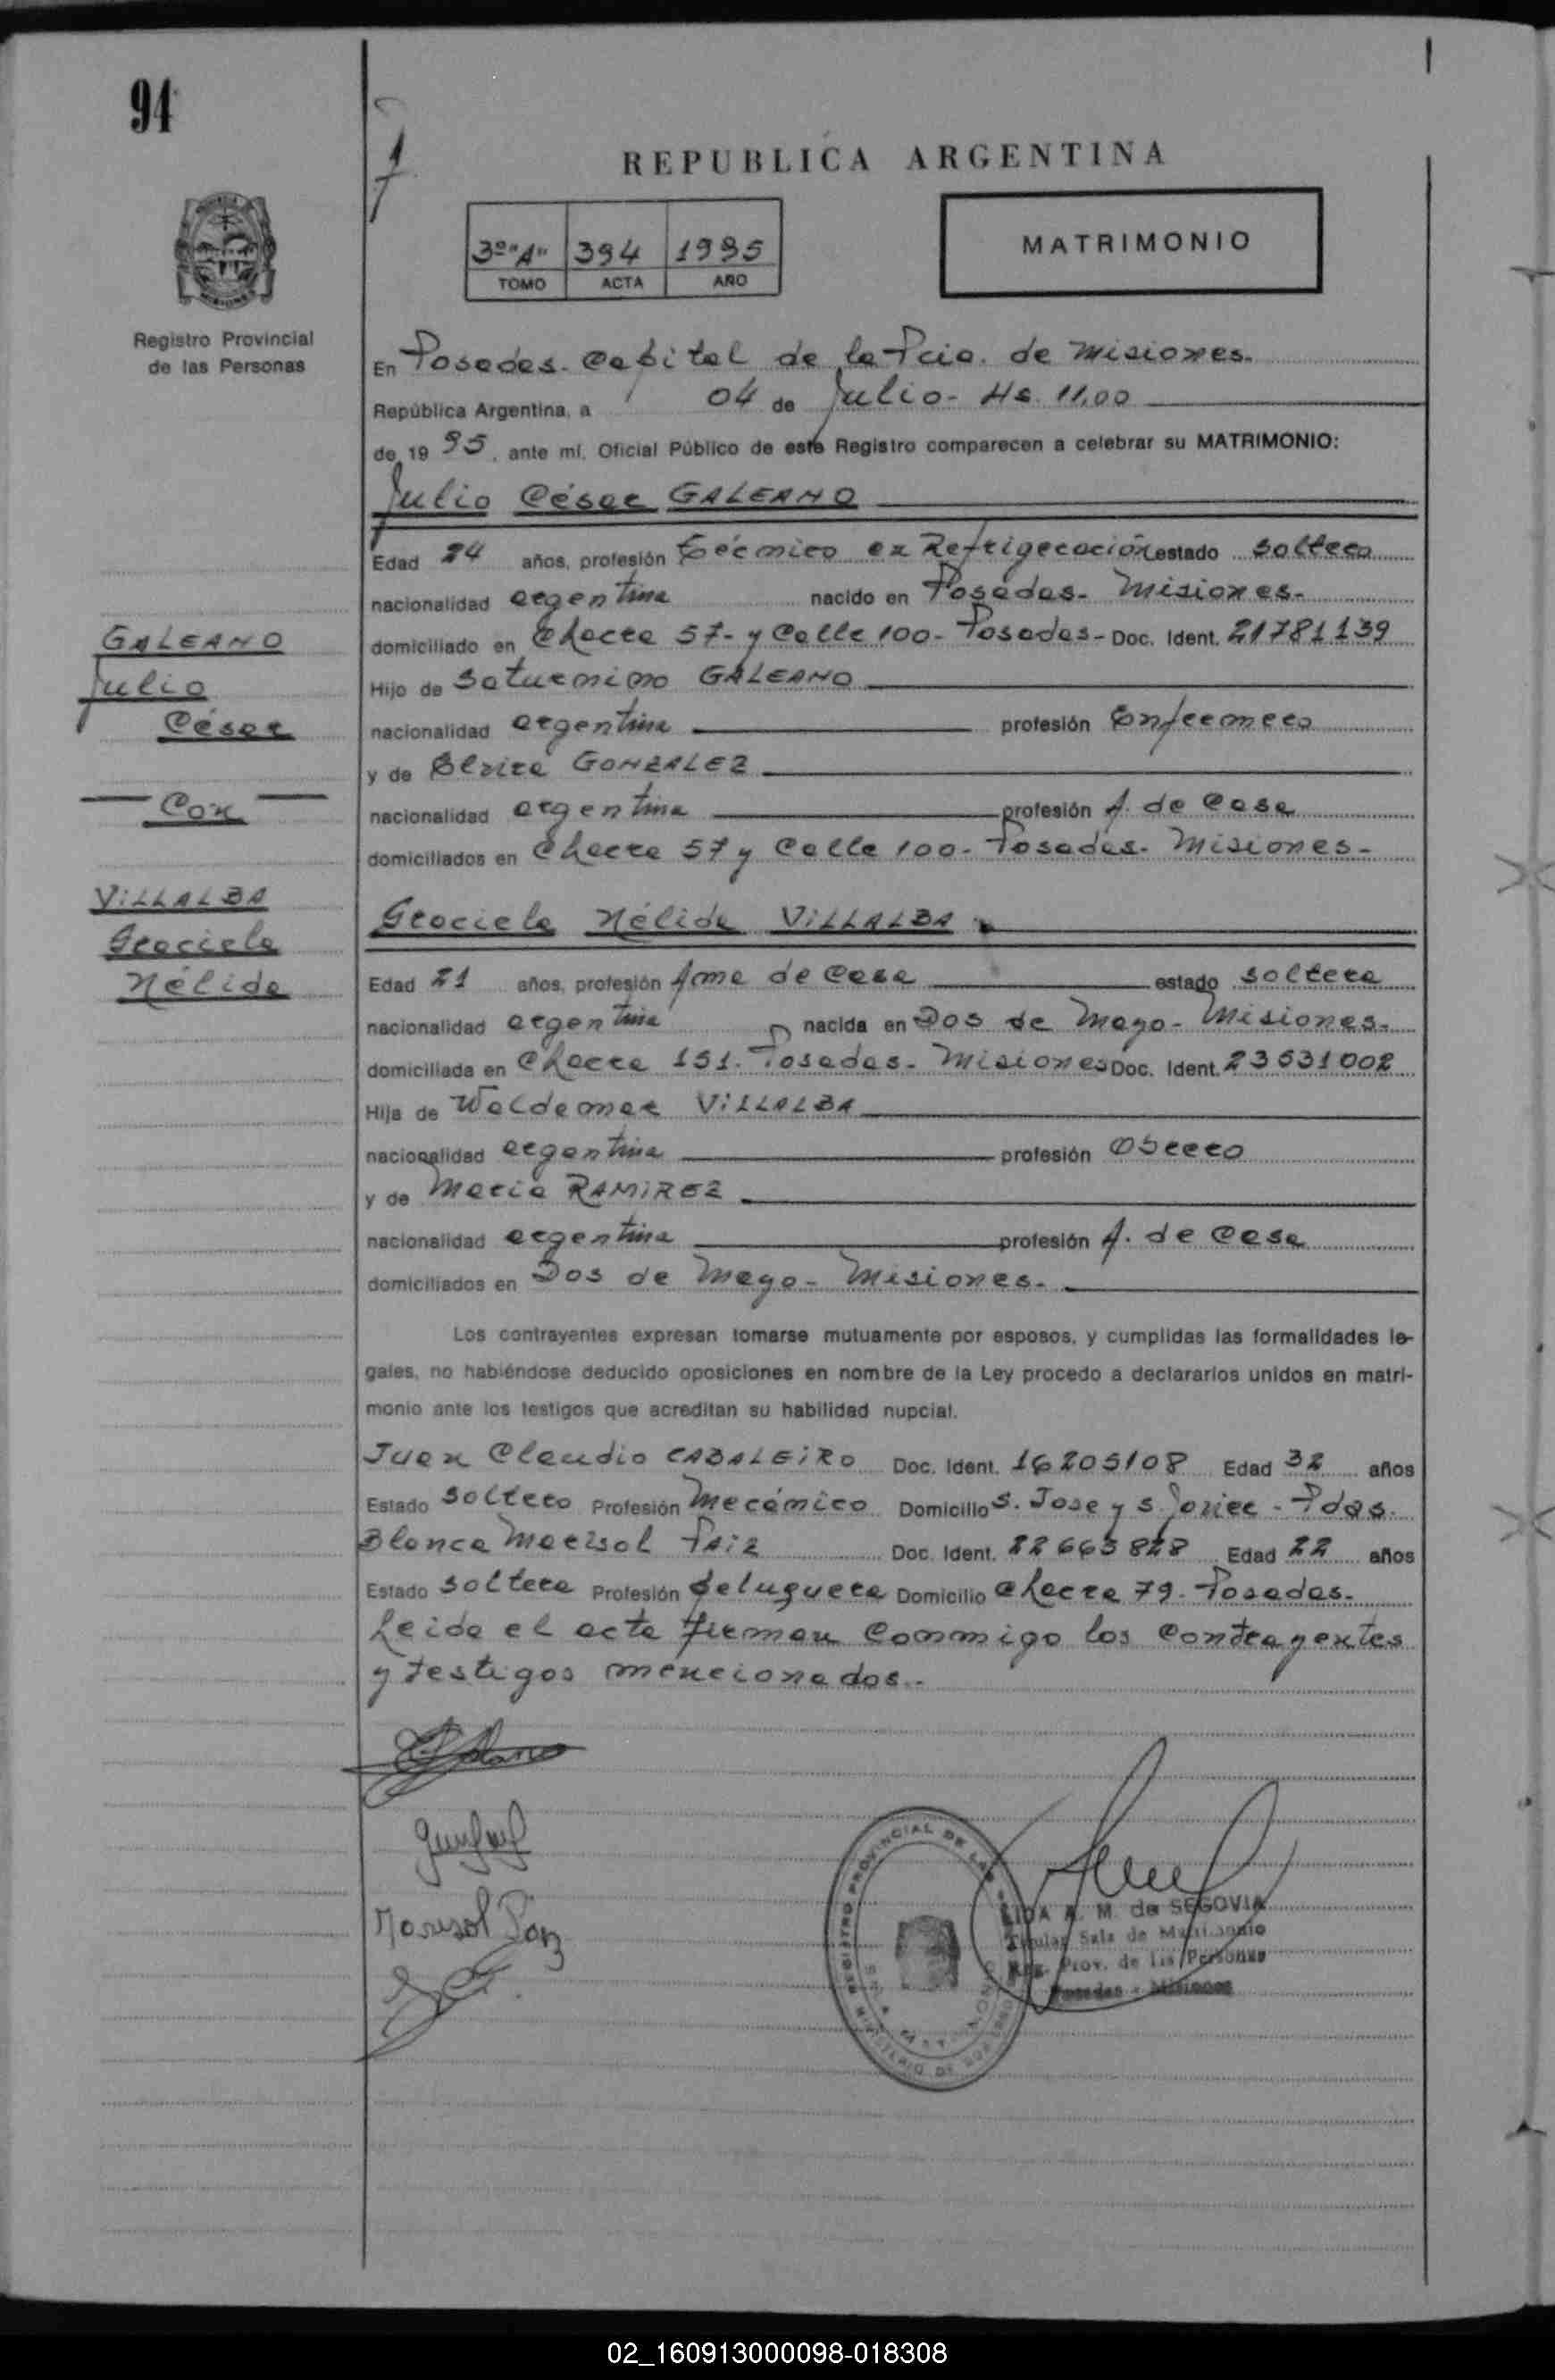 94
REPUBLICA ARGENTINA
3º "A" 394 1995
TOMO ACTA AÑO
MATRIMONIO
Registro Provincial
de las Personas
En Posadas - Capital de la Pcia. de Misiones.
República Argentina, a 04 de Julio - Hs. 11,00
de 19 95, ante mí, Oficial Público de este Registro comparecen a celebrar su MATRIMONIO:
Julio César GALEANO
Edad 24 años, profesión técnico en Refrigeración estado soltero
nacionalidad argentina nacido en Posadas - Misiones -
domiciliado en Chacra 57 - y Calle 100 - Posadas - Doc. Ident. 21781139
Hijo de Saturnino GALEANO
nacionalidad argentina profesión Enfermero
y de GONZALEZ
nacionalidad argentina profesión A. de Casa
domiciliados en Chacra 57 y Calle 100 - Posadas - Misiones -
GALEANO
Julio
César
Con
VILLALBA
Graciela
Nélida
Graciela Nélida VILLALBA
Edad 21 años, profesión Ama de Casa estado soltera
nacionalidad argentina nacida en Dos de Mayo - Misiones -
domiciliada en Chacra 151 - Posadas - Misiones Doc. Ident. 23531002
Hija de Waldemar VILLALBA
nacionalidad argentina profesión Obrero
y de María RAMIREZ
nacionalidad argentina profesión A. de Casa
domiciliados en Dos de Mayo - Misiones -
Los contrayentes expresan tomarse mutuamente por esposos, y cumplidas las formalidades le-
gales, no habiéndose deducido oposiciones en nombre de la Ley procedo a declararlos unidos en matri-
monio ante los testigos que acreditan su habilidad nupcial.
Juan Claudio CABALEIRO Doc. Ident. 16205108 Edad 32 años
Estado soltero Profesión Mecánico Domicilio S. Jose y S. Javier - Pdas.
Blanca Marisol PAIZ Doc. Ident. 22663828 Edad 22 años
Estado soltera Profesión Peluquera Domicilio Chacra 79 - Posadas -
Leida el acta firman conmigo los contrayentes
y testigos mencionados.-
Marisol Paiz
REGISTRO PROVINCIAL DE LAS
MINISTERIO DE
LIDA A. M. de SEGOVIA
Titular Sala de Matrimonio
Reg. Prov. de las Personas
Posadas - Misiones
02_160913000098-018308